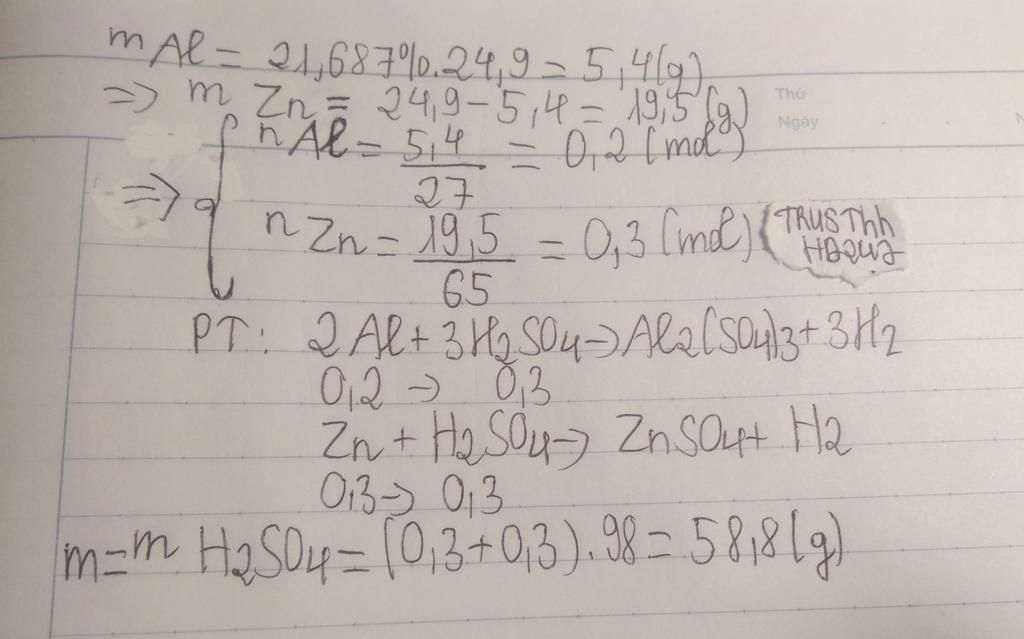 m Al = 21,687%.24,9 = 5,4(g)
=> m Zn = 24,9 - 5,4 = 19,5(g)
Thứ
Ngày
n Al = 5,4/27 = 0,2 (mol)
=> {
n Zn = 19,5/65 = 0,3 (mol)
TRUSThh
PT: 2Al + 3H2SO4 -> Al2(SO4)3 + 3H2
0,2 -> 0,3
Zn + H2SO4 -> ZnSO4 + H2
0,3 -> 0,3
m = m H2SO4 = (0,3+0,3).98 = 58,8(g)